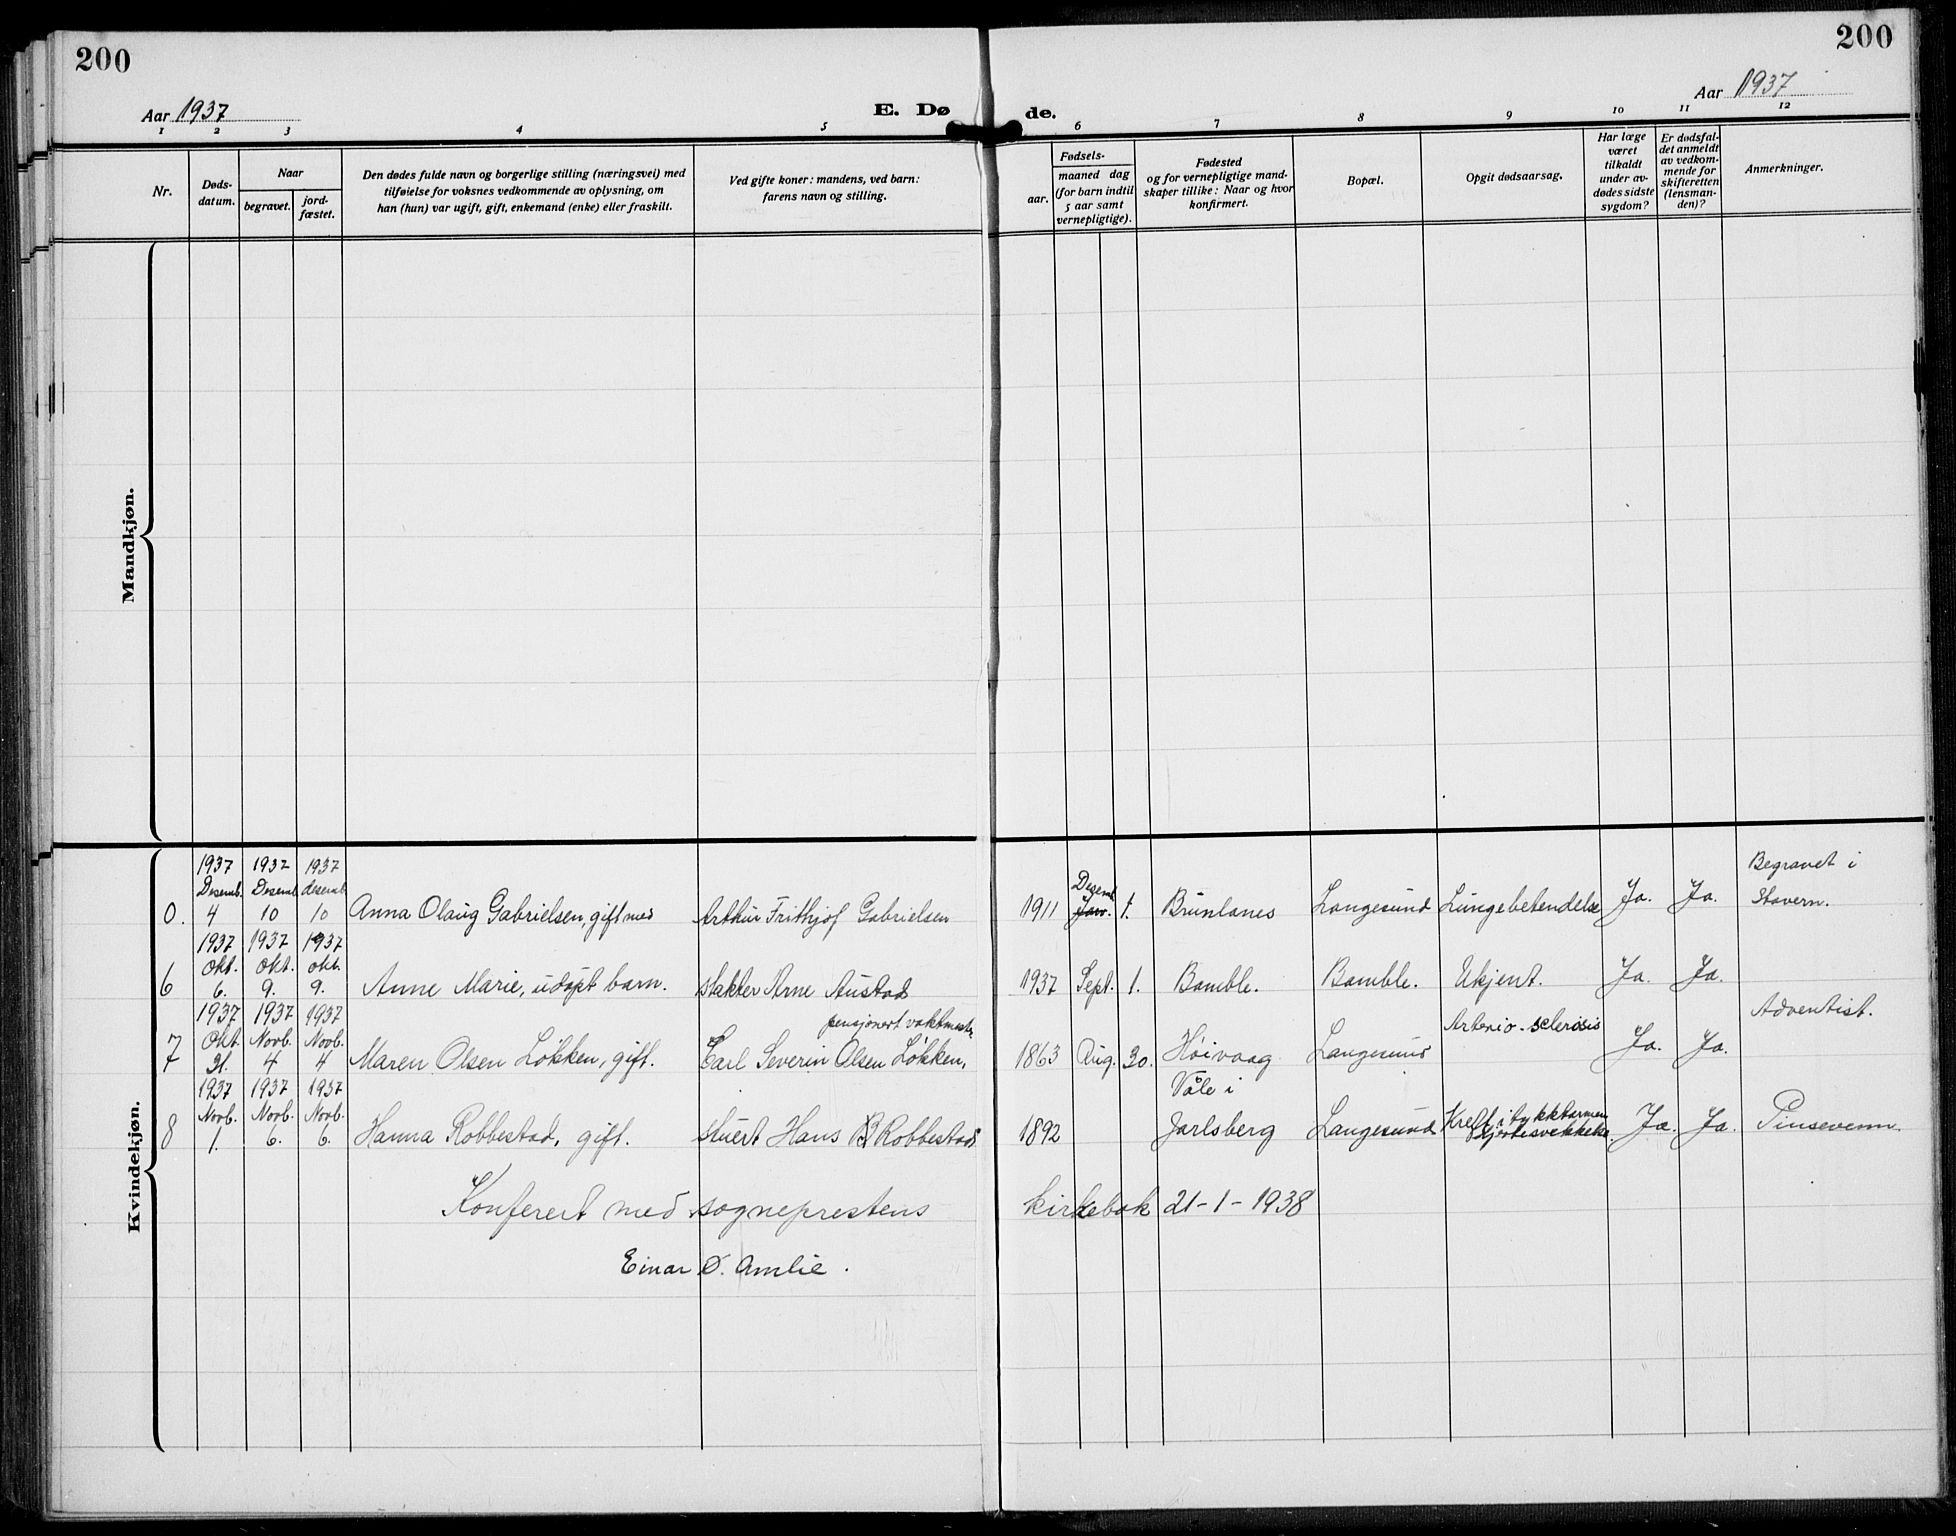 200
200
Aar 1937
E. Dø
de.
Aar 1937
1 2 3 4 5 6 7 8 9 10 11 12
Nr.
Døds-
datum.
Naar
begravet.
jord-
fæstet.
Den dødes fulde navn og borgerlige stilling (næringsvei) med
tilføielse for voksnes vedkommende av oplysning, om
han (hun) var ugift, gift, enkemand (enke) eller fraskilt.
Ved gifte koner: mandens, ved barn:
farens navn og stilling.
Fødsels-
aar.
maaned dag
(for barn indtil
5 aar samt
vernepligtige).
Fødested
og for vernepligtige mand-
skaper tillike: Naar og hvor
konfirmert.
Bopæl.
Opgit dødsaarsag.
Har læge
været
tilkaldt
under av-
dødes sidste
sygdom?
Er dødsfal-
det anmeldt
av vedkom-
mende for
skifteretten
(lensman-
den)?
Anmerkninger.
Mandkjøn.
Kvindekjøn.
1937 1937 1937
Desemb. Desemb. desemb. Desemb. Begravet i
0. 4 10 10 Anna Olaug Gabrielsen, gift med Arthur Frithjof Gabrielsen 1911 Jan. 1. Brunlanes Langesund Lungebetendelse Ja. Ja. Stavern.
1937 1937 1937
Okt. Okt. okt.
6 6. 9. 9. Anne Marie, udøpt barn. slakter Arne Austad 1937 Sept. 1. Bamble. Bamble. Ukjent. Ja. Ja.
1937 1937 1937 pensjonert vaktmestr. Arterio-sclerosis Adventist.
7 Okt Novb. Novb.
7 31. 4 4 Maren Olsen Løkken, gift. Carl Severin Olsen Løkken, 1863 Aug. 30. Høivaag Langesund Ja. Ja.
1937 1937 1937 Våle i
Novb. Novb. Novb. Kreft i tykktarmen
8 1. 6. 6. Hanna Robbestad, gift. stuert Hans B Robbestad 1892 Jarlsberg Langesund Hjertesvekkelse. Ja. Ja. Pinsevenn.
Konferert med sogneprestens kirkebok 21-1-1938
Einar O. Amlie.